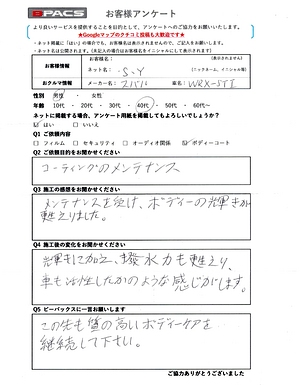 SPACS お客様アンケート
より良いサービスを提供することを目的として、アンケートへのご協力をお願いいたします。
★Googleマップのクチコミ投稿も大歓迎です★
・ネット掲載に「はい」の場合でも、お客様名は表示されませんので、ご記入をお願いします。
・ネット名は公開されます。(未記入の場合はお客様名をイニシャルにして表示されます)
お客様情報
お客様名: (表示されません)
ネット名: S.Y (ニックネーム、イニシャル等)
おクルマ情報
メーカー名: スバル 車名: WRX-STI
性別 男性 ・ 女性
年齢 10代 ・ 20代 ・ 30代 ・ 40代 ・ 50代 ・ 60代~
ネットに掲載する場合、アンケート用紙を掲載してもよろしいでしょうか?
☑ はい □ いいえ
Q1 ご依頼内容
□ フィルム □ セキュリティ □ オーディオ関係 ☑ ボディーコート
Q2 ご依頼目的をお聞かせください
コーティングのメンテナンス
Q3 施工の感想をお聞かせください
メンテナンスを受け、ボディーの輝きが
甦えりました。
Q4 施工後の変化をお聞かせください
輝きに加え、撥水力も甦えり、
車も活性したかのような感じがします。
Q5 ビーパックスに一言お願いします
この先も質の高いボディーケアを
継続して下さい。
ご協力ありがとうございました